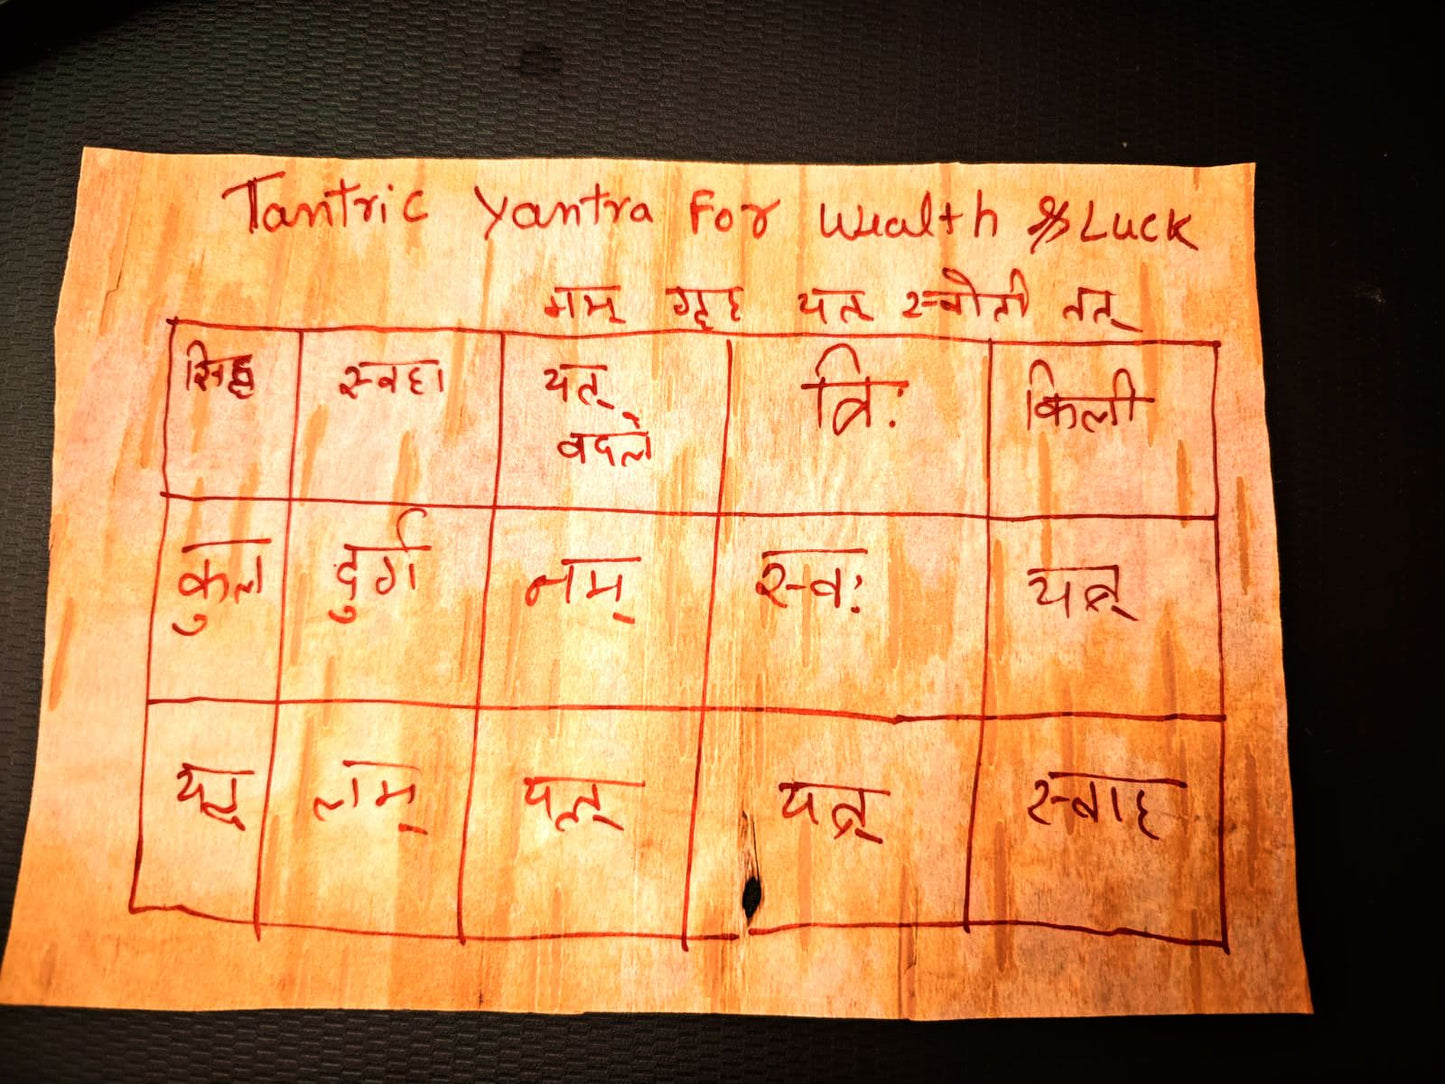 Tantric Yantra For Wealth & Luck
मम् गृह यत्न स्वौती तत्
सिंह स्वहा यत् त्रिः किली
वदले
कुल दुर्ग नम् स्वः यत्न्
यत् नम् यत्न् यत्न् स्वाह